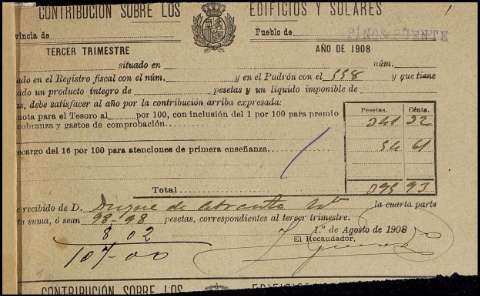 CONTRIBUCIÓN SOBRE LOS EDIFICIOS Y SOLARES
vincia de Pueblo de
TERCER TRIMESTRE AÑO DE 1908
situado en núm.
ado en el Registro fiscal con el núm. y en el Padrón con el 558 y que tiene
ado un producto íntegro de pesetas y un líquido imponible de
as, debe satisfacer al año por la contribución arriba expresada:
Pesetas. Cénts.
uota para el Tesoro al por 100, con inclusión del 1 por 100 para premio
obranza y gastos de comprobación. 341 32
ecargo del 16 por 100 para atenciones de primera enseñanza. 54 61
Total 395 93
e recibido de D. Duque de Abrantes la cuarta parte
ta suma, ó sean 98-98 pesetas, correspondientes al tercer trimestre.
8 02
107-00
1.º de Agosto de 1908
El Recaudador,
CONTRIBUCIÓN SOBRE LOS EDIFICIOS Y SOLARES